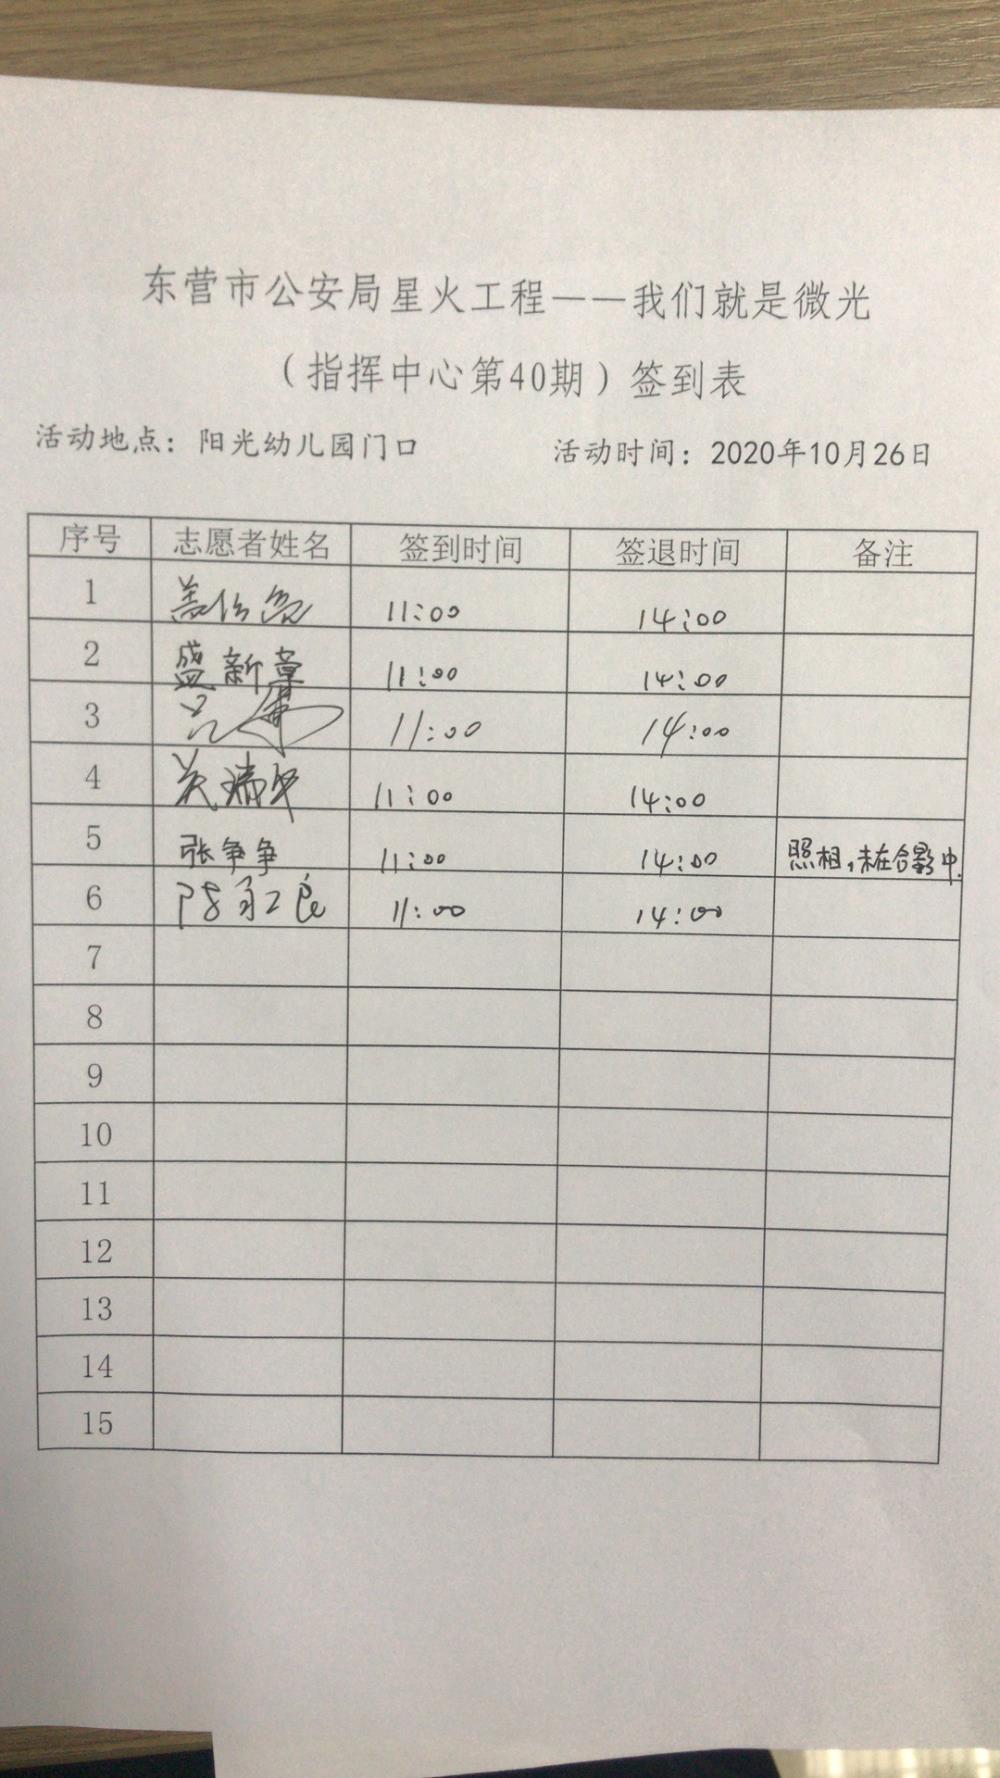 东营市公安局星火工程——我们就是微光
（指挥中心第40期）签到表
活动地点：阳光幼儿园门口 活动时间：2020年10月26日
序号 志愿者姓名 签到时间 签退时间 备注
1 11:00 14:00
2 盛新章 11:00 14:00
3 11:00 14:00
4 11:00 14:00
5 张争争 11:00 14:00 照相，未在合影中.
6 11:00 14:00
7
8
9
10
11
12
13
14
15